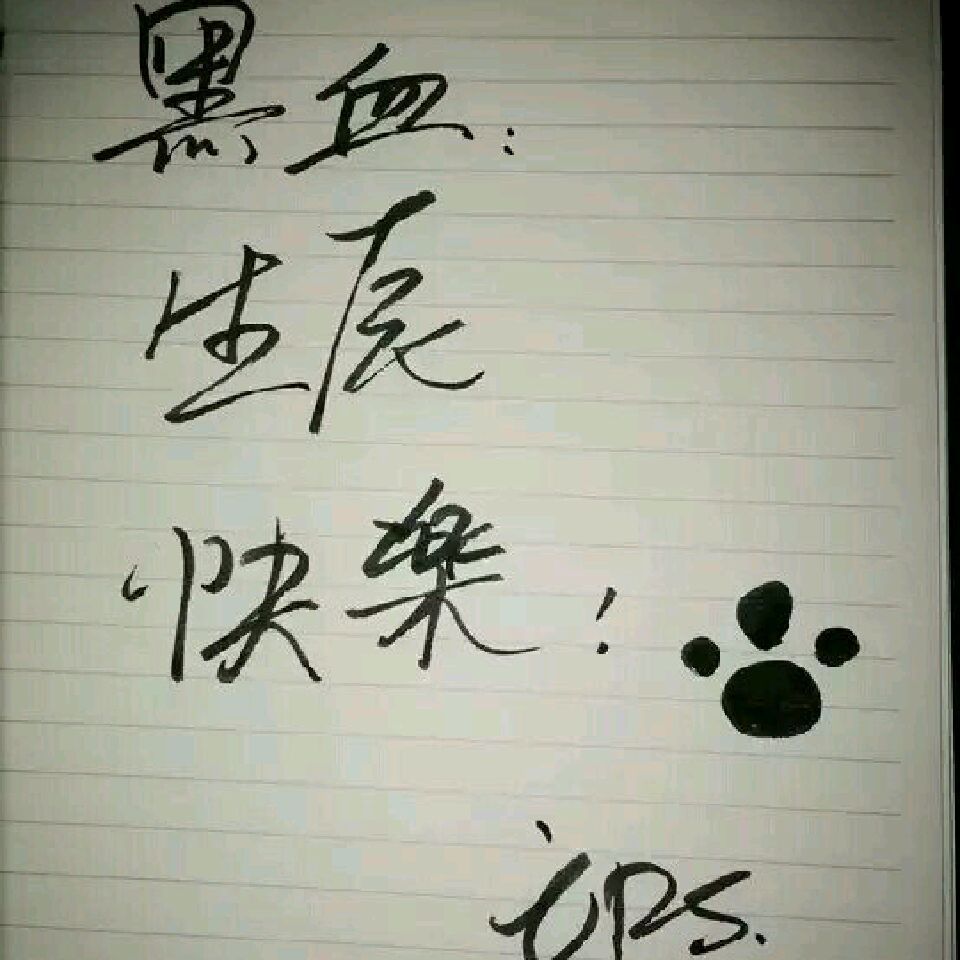 黑血:
生辰
快樂!